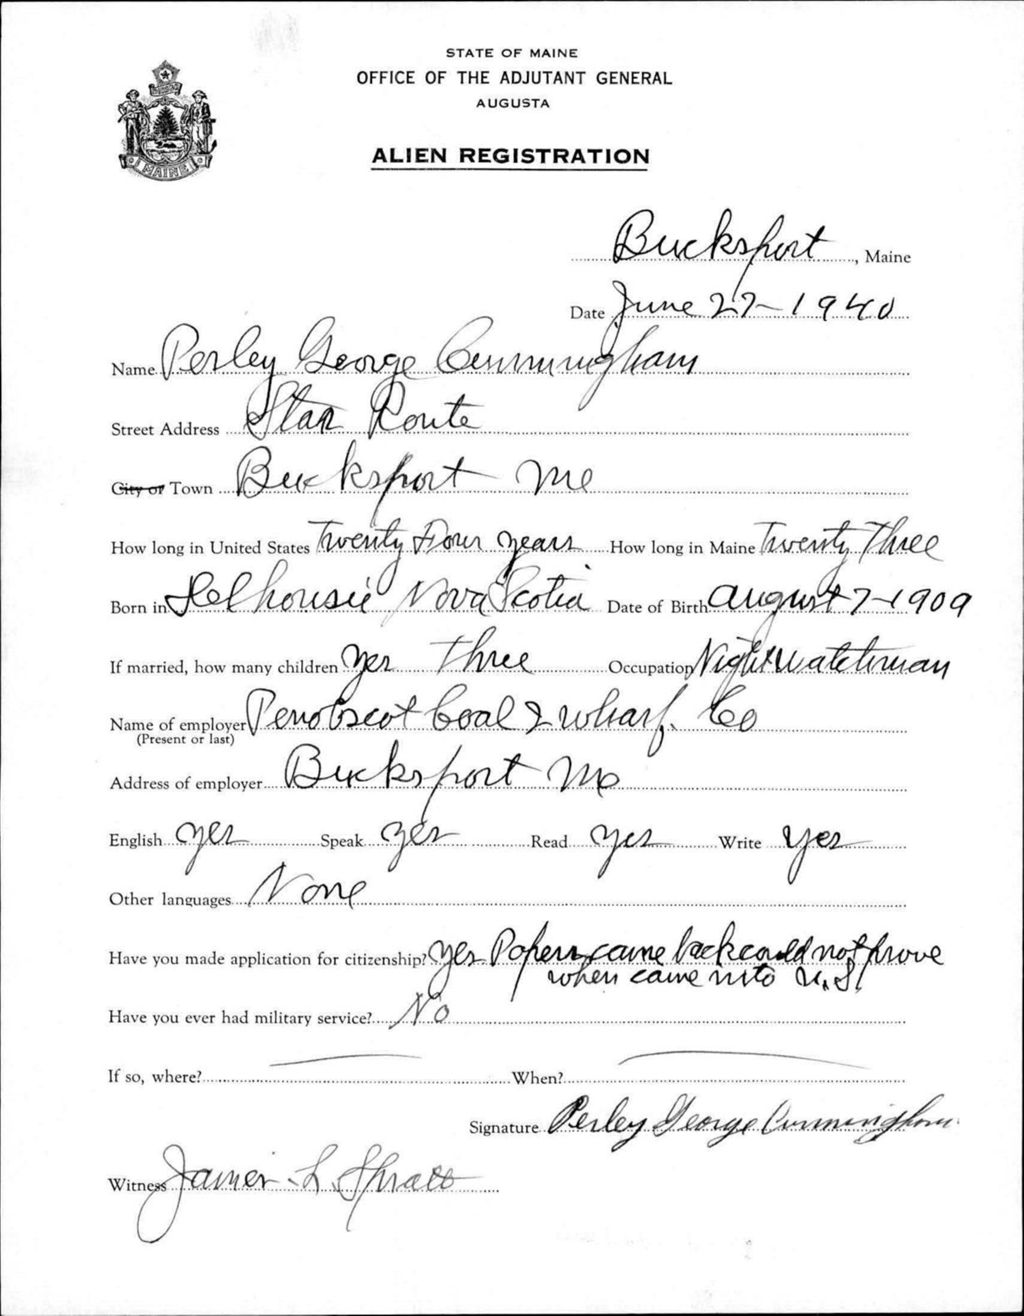 STATE OF MAINE
OFFICE OF THE ADJUTANT GENERAL
AUGUSTA
ALIEN REGISTRATION
MAINE
Bucksport, Maine
Date June 27-1940
Name Perley George Cunningham
Street Address Star Route
City or Town Bucksport Me
How long in United States Twenty Four years How long in Maine Twenty Three
Born in Delhousie Nova Scotia Date of Birth August 7-1909
If married, how many children yes Three Occupation Night Watchman
Name of employer Penobscot Coal & Wharf. Co
(Present or last)
Address of employer Bucksport Me
English yes Speak yes Read yes Write yes
Other languages None
Have you made application for citizenship? yes Papers came back could not prove
when came into U.S.
Have you ever had military service? No
If so, where? When?
Signature Perley George Cunningham
Witness James L Spratt